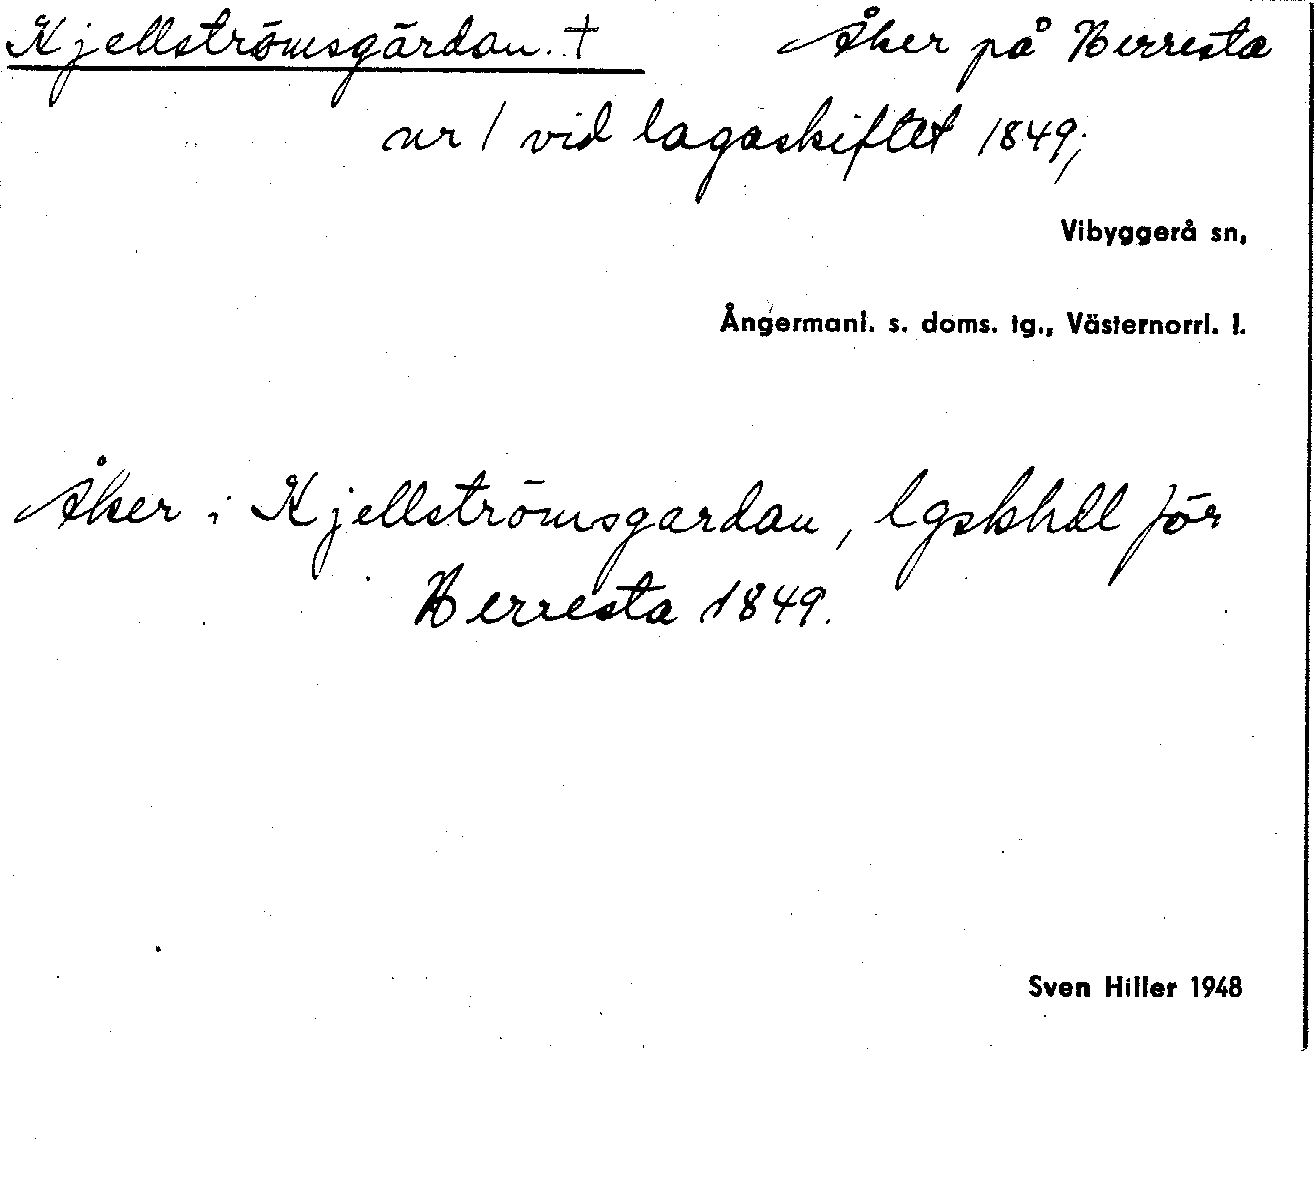 Kjellströmsgärdan. † Åker på Herresta
nr 1 vid lagaskiftet 1849;
Vibyggerå sn,
Ångermanl. s. doms. tg., Västernorrl. l.
Åker i Kjellströmsgardan, lgskhdl för
Herresta 1849.
Sven Hiller 1948